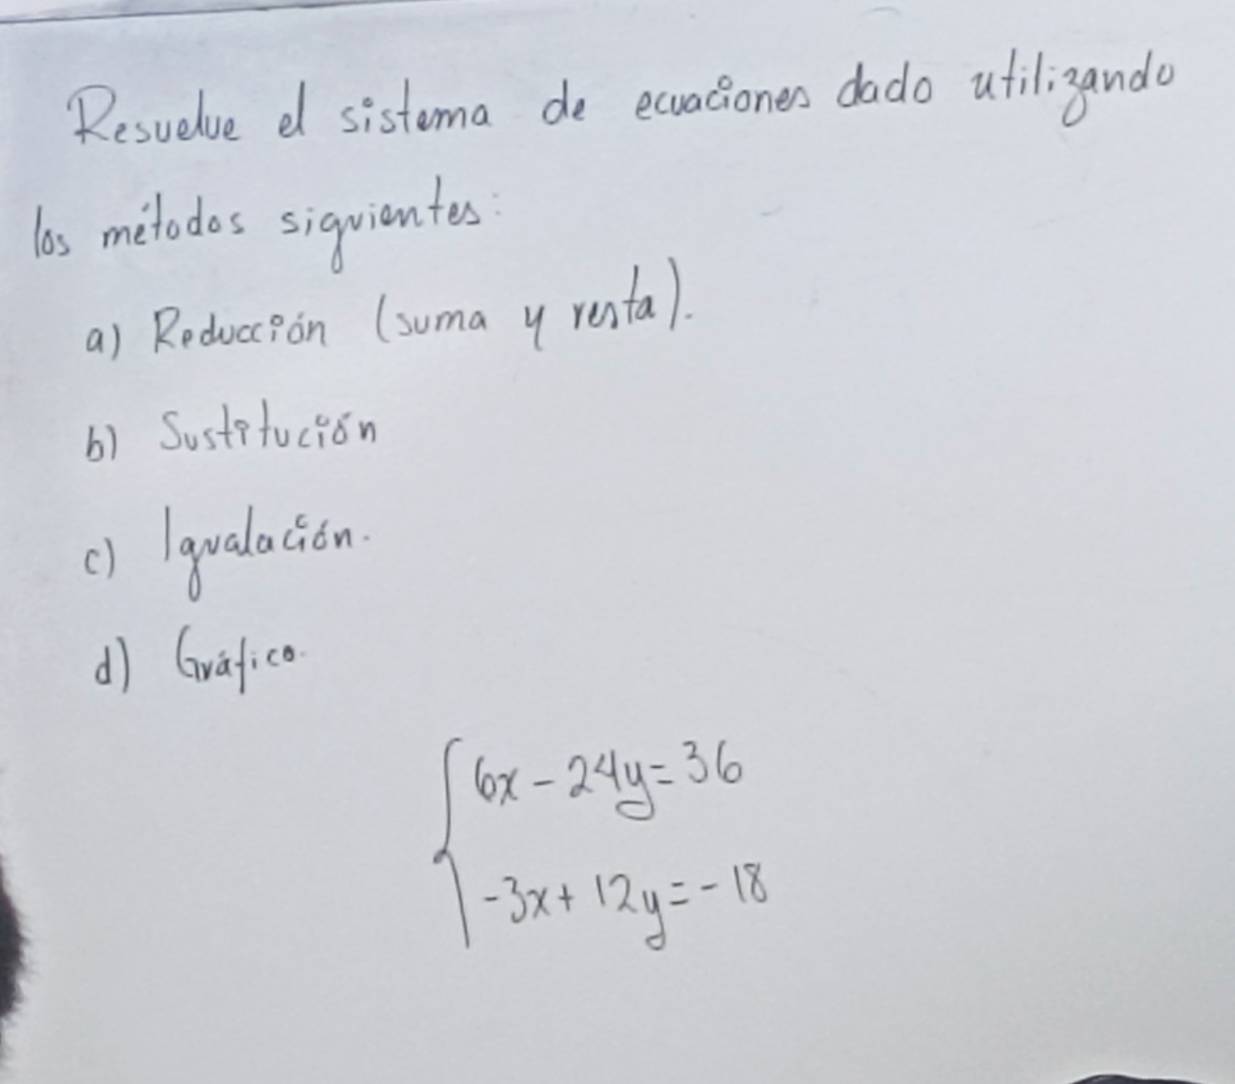 Resuelve el sistema de ecuaciones dado utilizando
los métodos siguientes:
a) Reducción (suma y resta).
b) Sustitución
c) Igualación.
d) Gráfico.
6x - 24y = 36
-3x + 12y = -18